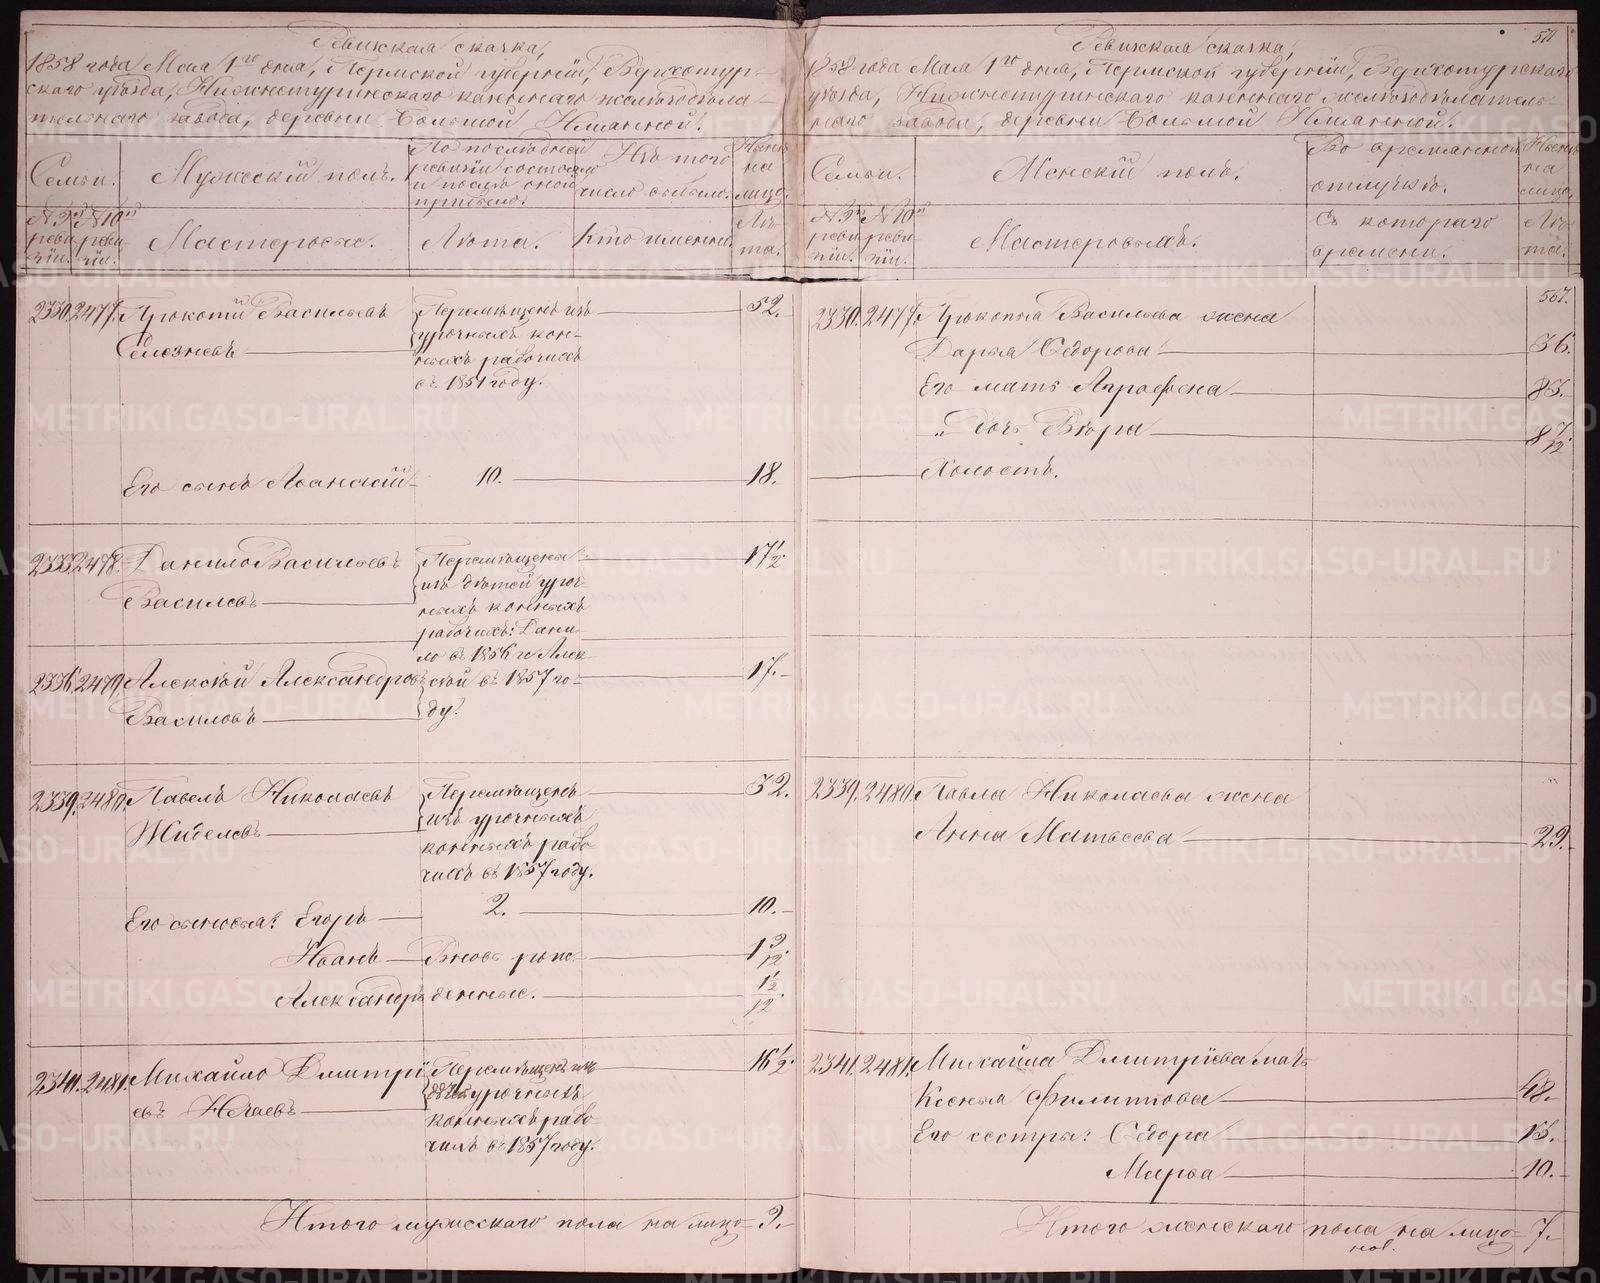 Ревизская сказка,
1858 года Мая 1го дня, Пермской губернии, Верхотур-
скаго уезда, Нижнетуринскаго казеннаго железодела-
тельнаго завода, деревни Большой Именной.
Семьи.
Мужеский полъ.
По последней
ревизiи состояло
и после оной
прибыло.
Изъ того
число выбыло.
Ныне
на
лицо.
№ 9й
реви-
зiи.
№ 10й
реви-
зiи.
Мастеровые.
Лета.
Кто именно.
Ле-
та.
2330. 2477. Прокопiй Васильевъ
Селезневъ
Перемещенъ изъ
урочныхъ кон-
ныхъ рабочихъ
въ 1851 году.
52.
Его сынъ Афанасiй
10.
18.
2333. 2478. Данило Васильевъ
Василевъ
Перемещены
изъ детей уроч-
ныхъ конныхъ
рабочихъ: Дани-
ло въ 1856 и Алек-
сей въ 1857 го-
ду.
17 1/2.
2336. 2479. Алексей Александровъ
Василовъ
17.
2339. 2480. Павелъ Николаевъ
Жиделевъ
Перемещенъ
изъ урочныхъ
конныхъ рабо-
чихъ въ 1857 году.
32.
Его сыновья: Егоръ
2.
10.
Иванъ
Вновь рож-
1 9/12.
Александръ
денные.
1 1/2/12.
2341. 2481. Михайло Дмитрi-
евъ Нечаевъ
Перемещенъ изъ
детей урочныхъ
конныхъ рабо-
чихъ въ 1857 году.
16 1/2.
Итого мужескаго пола на лицо 9.
511
Ревизская сказка,
1858 года Мая 1го дня, Пермской губернии, Верхотурскаго
уезда, Нижнетуринскаго казеннаго железоделатель-
наго завода, деревни Большой Именной.
Семьи.
Женскiй полъ.
Во временной
отлучке.
Ныне
на
лицо.
№ 9й
реви-
зiи.
№ 10й
реви-
зiи.
Мастеровыхъ.
Съ котораго
времени.
Ле-
та.
567.
2330. 2477. Прокопiя Васильева жена
Дарья Федорова
36.
Его мать Аграфена
83.
„ дочь Вера
8 7/12.
Холостъ.
2339. 2480. Павла Николаева жена
Анна Матвеева
29.
2341. 2481. Михайла Дмитрiева мать
Ксенья Филиппова
48.
Его сестры: Федора
13.
Марья
10.
Итого женскаго пола на лицо 7.
METRIKI.GASO-URAL.RU